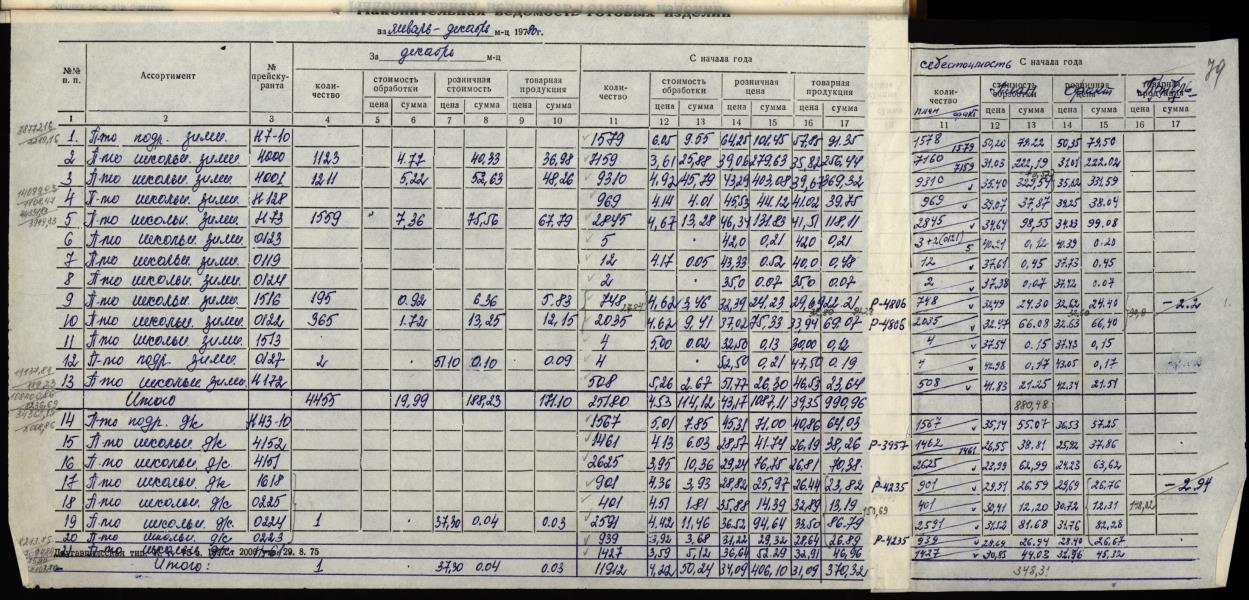 Накопительная ведомость готовых изделий
за январь - декабрь м-ц 1980г.
За декабрь м-ц С начала года себестоимость С начала года 79
№№ п. п. Ассортимент № прейскуранта количество стоимость обработки розничная стоимость товарная продукция количество стоимость обработки розничная цена товарная продукция количество
цена сумма цена сумма цена сумма цена сумма цена сумма цена сумма план факт цена сумма цена сумма цена сумма
1 2 3 4 5 6 7 8 9 10 11 12 13 14 15 16 17 11 12 13 14 15 16 17
1. П-то подр. зимн. Н7-10 1579 6.05 9.55 64,25 101,45 57,85 91.35 1578 1579 50,20 79.22 50,35 79,50
2 П-то школьн. зимн. 4000 1123 4.77 40,33 36,98 7159 3,61 25,88 39,06 279,63 35,82 256,44 7160 7159 31.03 222,19 31,01 222.02
3 П-то школьн. зимн. 4001 1211 5,22 52,63 48,26 9310 4.92 45,79 43,29 403,08 39,67 369,32 9310 35,40 329,54 35,62 331,59
4 П-то школьн. зимн. Н128 969 4.14 4.01 45,53 44,12 41.02 39.75 969 39,07 37,87 39,25 38.04
5 П-то школьн. зимн. Н73 1559 7,36 75,56 67,79 2845 4,67 13,28 46,34 131.83 41,51 118,11 2845 34,64 98,55 34,83 99.08
6 П-то школьн. зимн. 0123 5 42,0 0,21 42,0 0,21 3+2(0121) 5 40.21 0,20 40.39 0.20
7 П-то школьн. зимн. 0119 12 4.17 0.05 43,33 0.52 40,0 0,48 12 37,61 0,45 37,73 0.45
8 П-то школьн. зимн. 0124 2 35,0 0.07 35,0 0.07 2 37,38 0,07 37,42 0.07
9 П-то школьн. зимн. 1516 195 0.92 6.36 5,83 748 4,62 3,46 32,39 24,23 29,69 22.21 Р-4806 748 32,49 24.30 32,62 24.40 -2.2
10 П-то школьн. зимн. 0122 365 1.72 13,25 12,15 2035 4.62 9,41 37,02 75,33 33,94 69.07 Р-4806 2035 32.47 66.08 32.63 66,40
11 П-то школьн. зимн. 1513 4 5,00 0.02 32,50 0,13 30,00 0,12 4 37,54 0.15 37,43 0,15
12 П-то подр. зимн. 0127 2 51,10 0.10 0.09 4 52,50 0,21 47,50 0.19 4 42,98 0,17 43,05 0,17
13 П-то школьн. зимн. 4172 508 5,26 2.67 51,77 26,30 46,53 23,64 508 41.83 21.25 42,34 21.51
Итого 4455 19,99 188,23 171.10 25780 4.53 114,12 43,17 1087,11 39,35 990,96 880,48
14 П-то подр. д/с Н43-10 1567 5,01 7.85 45,31 71.00 40,86 64,03 1567 35,14 55,07 36,53 57.25
15 П-то школьн. д/с 4152 1461 4.13 6.03 28,57 41.74 26,19 38,26 Р-3957 1462 1461 26,55 38,81 25,92 37,86
16 П-то школьн. д/с 4151 2625 3,95 10,36 29,24 76,75 26,81 70,38 2625 23,99 62,99 24,23 63,62
17 П-то школьн. д/с 1618 901 4,36 3.93 28,82 25,97 26,44 23,82 Р-4235 901 29,51 26.59 29,69 26,76 -2.94
18 П-то школьн. д/с 0225 401 4.51 1.81 35,88 14.39 32,89 13,19 401 30,41 12,20 30,72 12,31
19 П-то школьн. д/с 0224 1 37,30 0.04 0.03 2591 4.42 11,46 36,52 94,64 33,50 86,79 2591 31,52 81.68 31,76 82,28
20 П-то школьн. д/с 0223 939 3,92 3,68 31,22 29,32 28,64 26,89 Р-4235 939 28,69 26.94 28.40 26,67
1427 3,59 5,12 36,64 52.29 32,91 46,96 1427 30,85 44.03 45,32
Итого: 1 37,30 0.04 0.03 11912 4,22 50,24 34,09 406,10 31,09 370,32 348,31
29. 8. 75